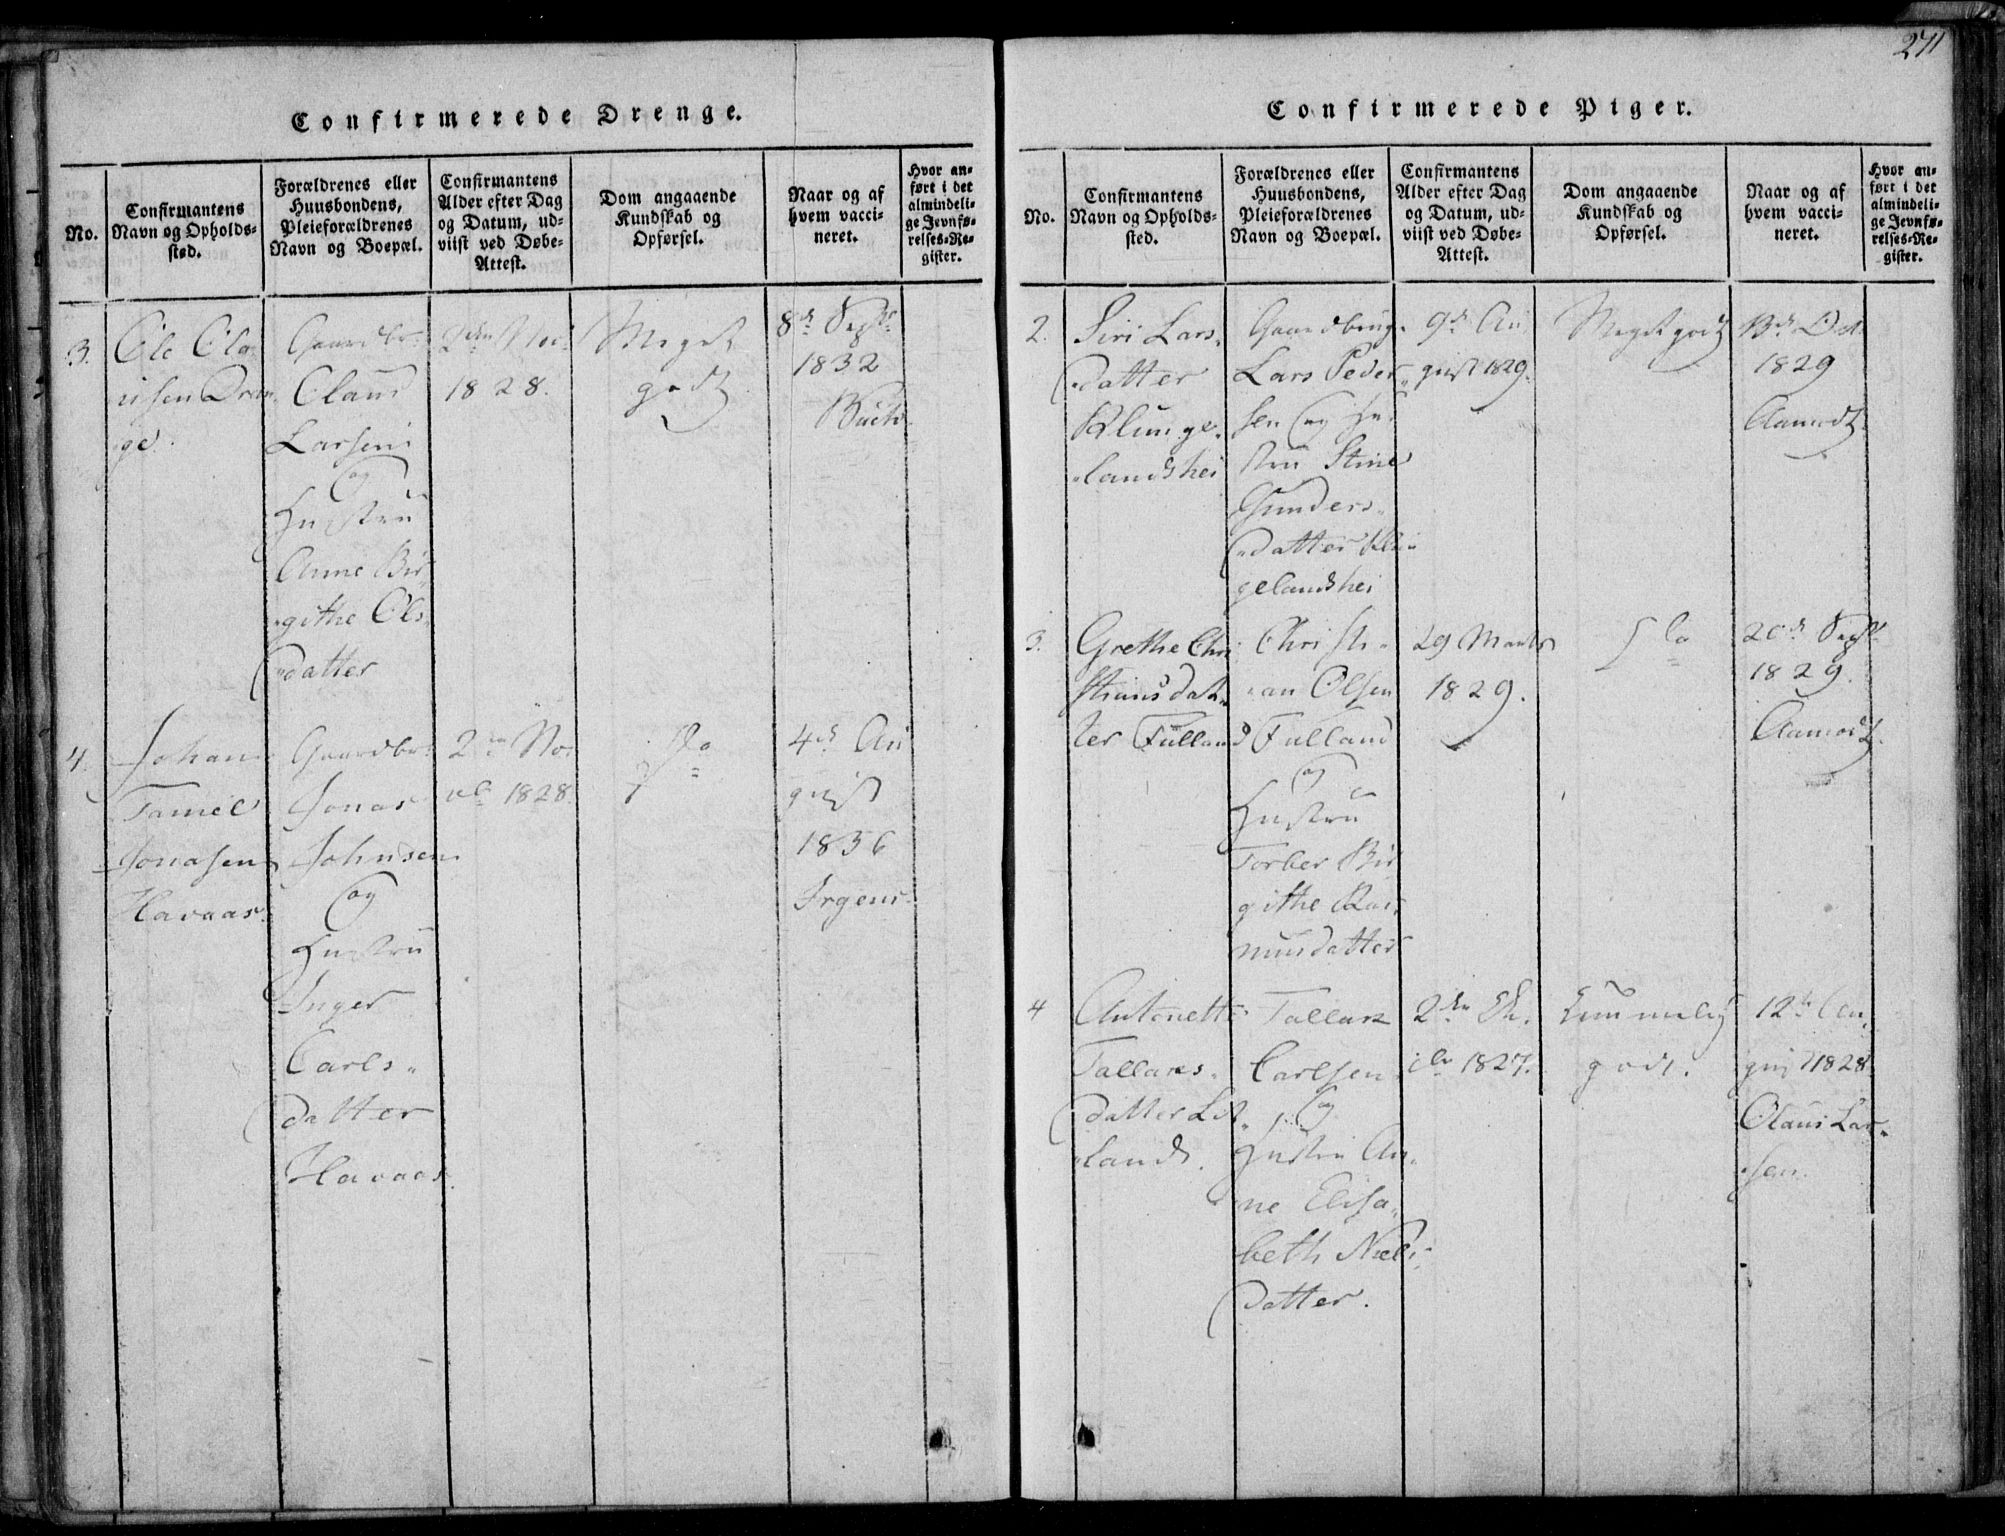 271
Confirmerede Drenge.
No.
Confirmantens
Navn og Opholds-
sted.
Forældrenes eller
Huusbondens,
Pleieforældrenes
Navn og Boepæl.
Confirmantens
Alder efter Dag
og Datum, ud-
viist ved Døbe-
Attest.
Dom angaaende
Kundskab og
Opførsel.
Naar og af
hvem vacci-
neret.
Hvor an-
ført i det
almindeli-
ge Jevnfø-
relses-Re-
gister.
3.
Ole Ola-
usen Dran-
ge.
Gaardbr.
Olaus
Larsen
og
Hustru
Anne Bir-
githe Ols-
datter
2den Nov.
1828.
Meget
godt
8de Septbr
1832
Buch.
4.
Johan
Taniel
Jonasen
Havaas.
Gaardbr.
Jonas
Johnsen
og
Hustru
Inger
Carls-
datter
Havaas.
2den No-
vbr 1828.
Do
4de Au
gust
1836
Irgens.
Confirmerede Piger.
No.
Confirmantens
Navn og Opholds-
sted.
Forældrenes eller
Huusbondens,
Pleieforældrenes
Navn og Boepæl.
Confirmantens
Alder efter Dag
og Datum, ud-
viist ved Døbe-
Attest.
Dom angaaende
Kundskab og
Opførsel.
Naar og af
hvem vacci-
neret.
Hvor an-
ført i det
almindeli-
ge Jevnfø-
relses-Re-
gister.
2.
Siri Lars-
datter
Klunge-
landshei
Gaardbrug.
Lars Peder-
sen og Hu-
stru Stine
Gunders-
datter Klun-
gelandshei
9de Au
gust 1829.
Meget godt
13de Oct.
1829
Aamodt
3.
Grethe Chri
stiansdat-
ter Fulland
Christi-
an Olsen
Fulland
og
Hustru
Torber Bir
githe Ras-
musdatter
29 Marts
1829.
Do
20de Septbr
1829.
Aamodt.
4
Antonette
Tallaks-
datter Lit-
land.
Tallak
Carlsen
og
Hustru An-
ne Elisa-
beth Niels-
datter.
2den
1827.
Temmelig
godt.
12te Au-
gust 1828
Olaus Lar-
sen.